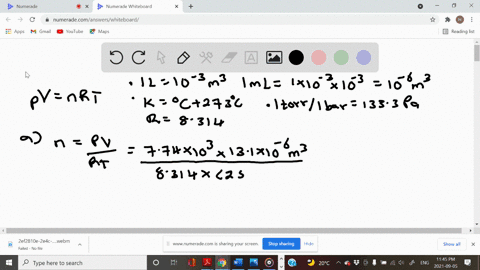 Numerade
Numerade Whiteboard
numerade.com/answers/whiteboard/
Apps
Gmail
YouTube
Maps
Reading list
• 1L = 10⁻³ m³ 1mL = 1×10⁻³ ×10⁻³ = 10⁻⁶ m³
pV = nRT
• K = °C + 273°C • 1torr/1bar = 133.3 Pa
R = 8.314
a) n = PV/RT = 7.74×10³ × 13.1×10⁻⁶ m³
8.314 × (25
www.numerade.com is sharing your screen.
Stop sharing
Hide
Failed - No file
Show all
Type here to search
20°C
ENG
11:45 PM
2021-09-05